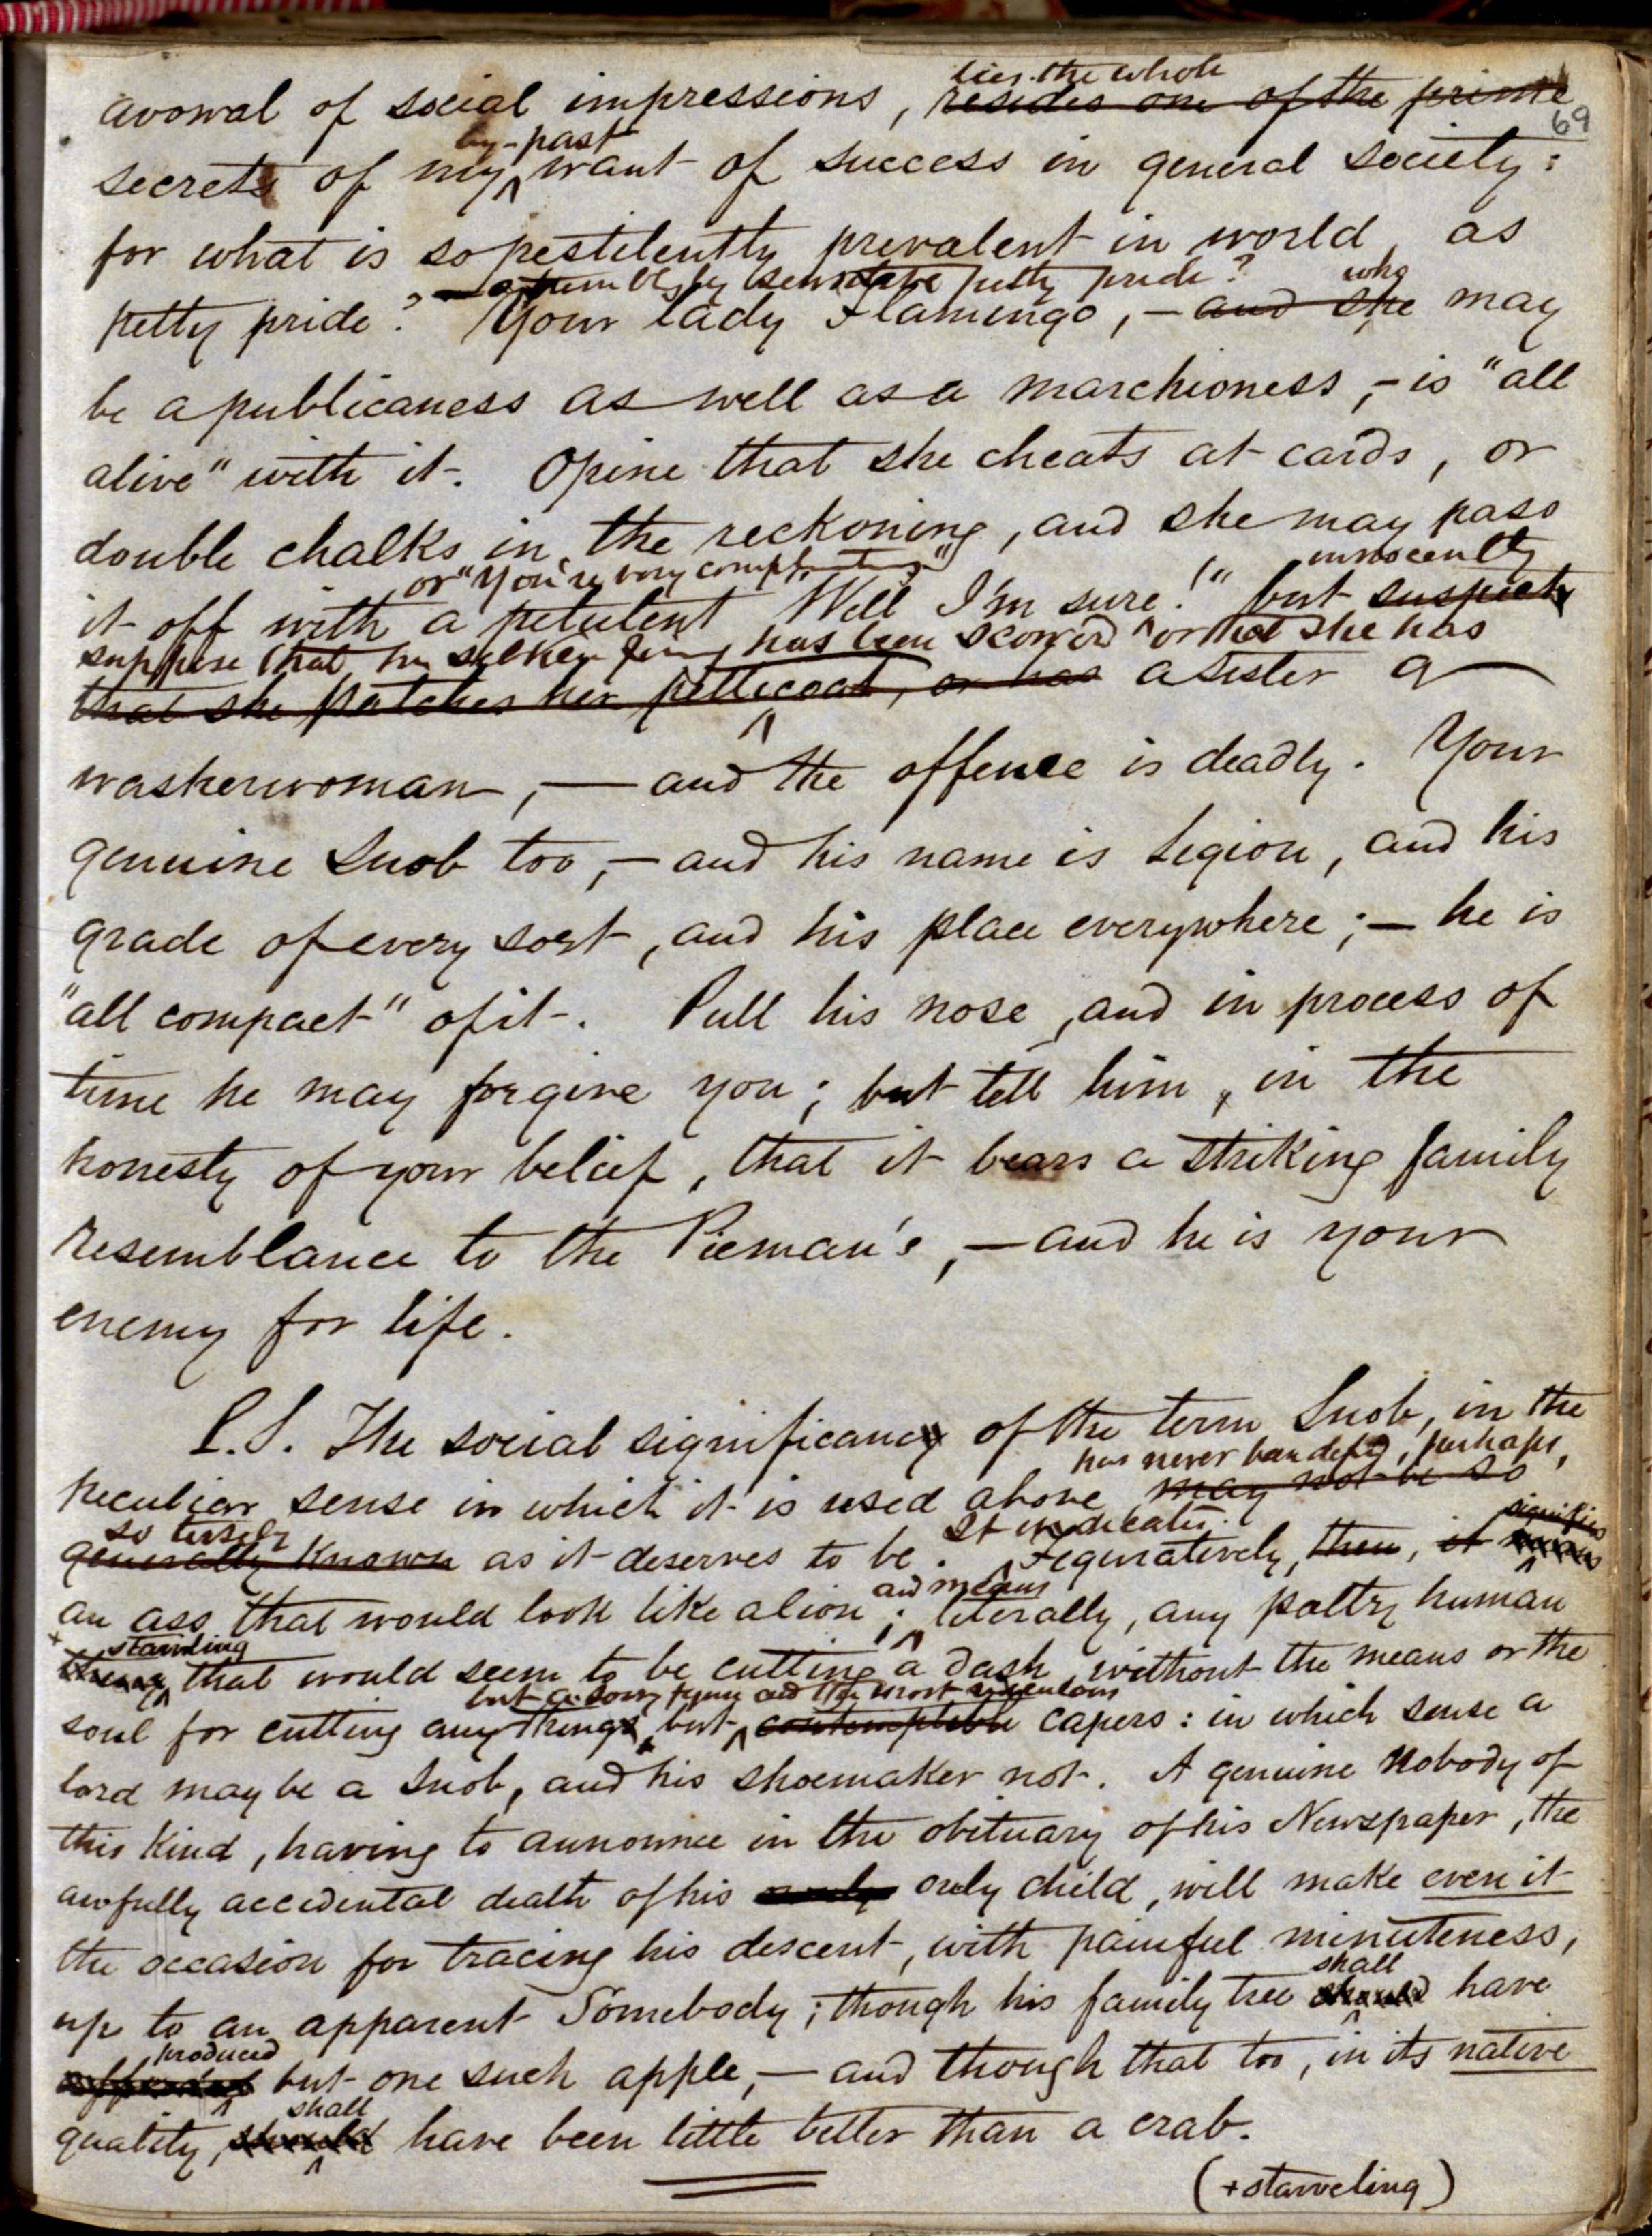 lies the whole
avowal of social impressions, resides one of the prime
69
by-past
secrets of my want of success in general society:
for what is so pestilently prevalent in world, as
sensitive petty pride?
who
petty pride? Your lady Flamingo, – and she may
be a publicaness as well as a marchioness, – is "all
alive" with it. Opine that she cheats at cards, or
double chalks in the reckoning, and she may pass
or "You're very
innocently
it off with a petulent "Well I'm sure!" but suspect
suppose that her silken has been scowered or that she has
that she patches her petticoat, or has a sister a
washerwoman, — and the offence is deadly. Your
genuine Snob too, – and his name is Legion, and his
grade of every sort, and his place everywhere; – he is
"all compact" of it. Pull his nose, and in process of
time he may forgive you; but tell him, in the
honesty of your belief, that it bears a striking family
resemblance to the Pieman's, – and he is your
enemy for life.
P.S. The social significancy of the term Snob, in the
has never been defd, perhaps,
peculiar sense in which it is used above may not be so
so tersely
It indicates
signifies
generally known as it deserves to be. Figuratively, then, it means
and means
an ass that would look like a lion; literally, any paltry human
+ starveling
thing that would seem to be cutting a dash, without the means or the
but a sorry figure and the most ridiculous
soul for cutting any things, but contemptible capers: in which sense a
lord may be a Snob, and his shoemaker not. A genuine Nobody of
this kind, having to announce in the obituary of his Newspaper, the
awfully accidental death of his only only child, will make even it
the occasion for tracing his descent, with painful minuteness,
shall
up to an apparent Somebody; though his family tree should have
produced
but one such apple, – and though that too, in its native
shall
quality, should have been little better than a crab.
(+ starveling)